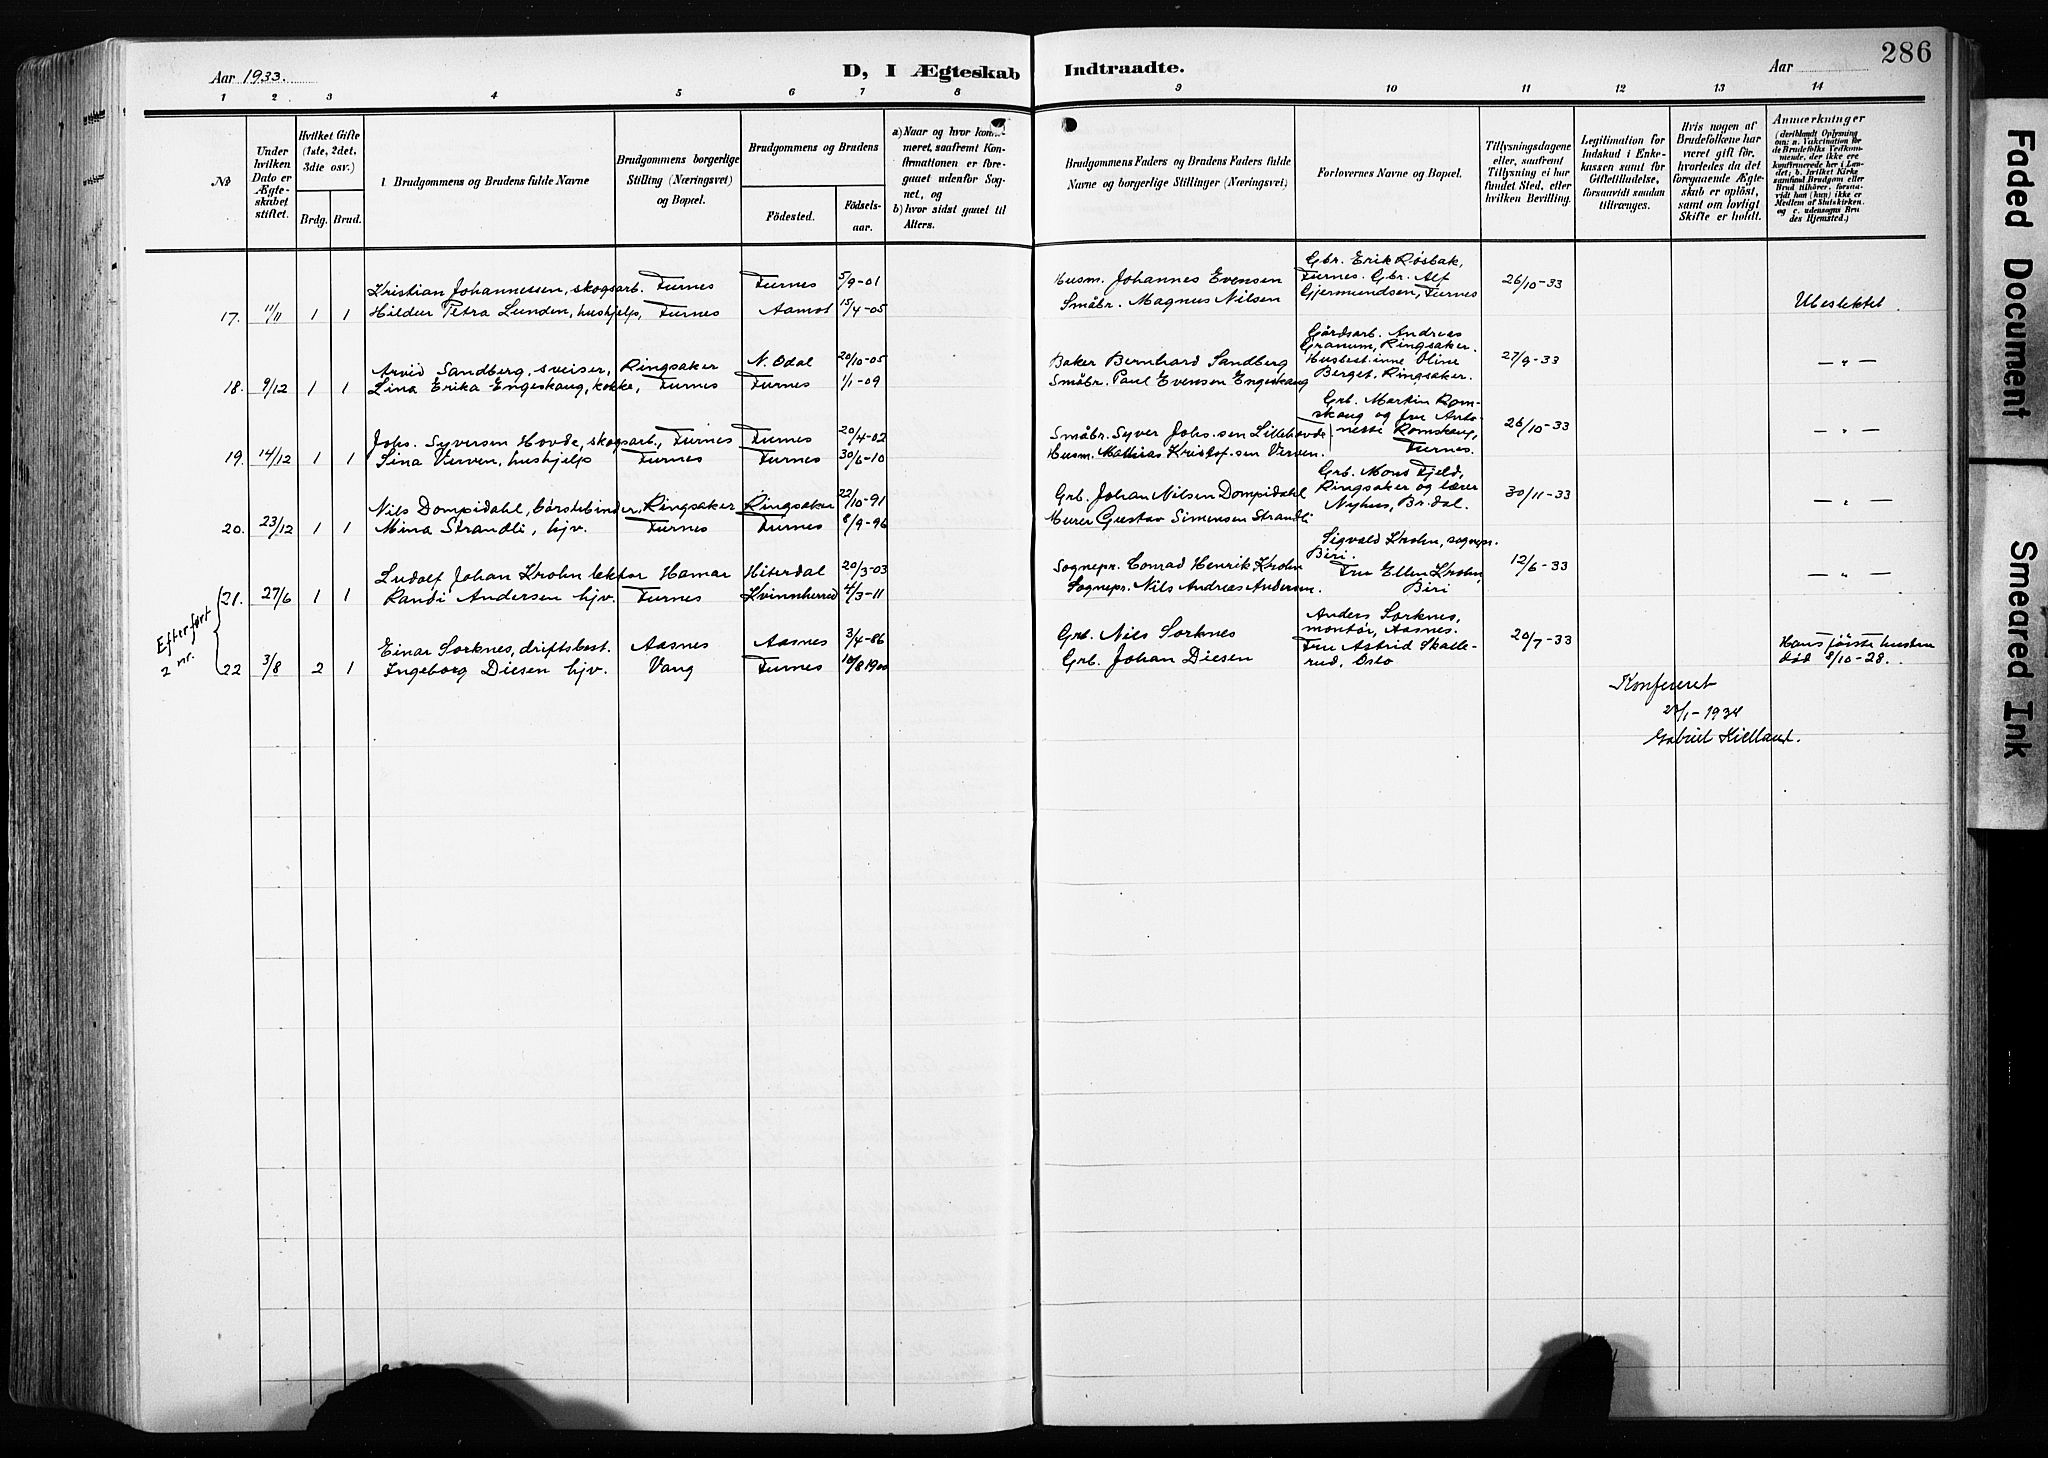 286
Aar 1933.
D, I Ægteskab Indtraadte.
Aar
1 2 3 4 5 6 7 8 9 10 11 12 13 14
№
Under
hvilken
Dato er
Ægte-
skabet
stiftet.
Hvilket Gifte
(1ste, 2det,
3die osv.)
Brdg. Brud.
1. Brudgommens og Brudens fulde Navne
Brudgommens borgerlige
Stilling (Næringsvei)
og Bopæl.
Brudgommens og Brudens
Födested.
Födsels-
aar.
a) Naar og hvor konfir-
meret, saafremt Kon-
firmationen er fore-
gaaet udenfor Sog-
net, og
b) hvor sidst gaaet til
Alters.
Brudgommens Faders og Brudens Faders fulde
Navne og borgerlige Stillinger (Næringsvei)
Forlovernes Navne og Bopæl.
Tillysningsdagene
eller, saafremt
Tillysning ei har
fundet Sted, efter
hvilken Bevilling.
Legitimation for
Indskud i Enke-
kassen samt for
Giftetilladelse,
forsaavidt saadan
tiltrænges.
Hvis nogen af
Brudefolkene har
været gift för,
hvorledes da det
foregaaende Ægte-
skab er oplöst,
samt om lovligt
Skifte er holdt.
Anmærkninger
(deriblandt Oplysning
om: a. Vakcination for
de Brudefolks Vedkom-
mende, der ikke ere
konfirmerede her i Lan-
det; b. hvilket Kirke
samfund Brudgom eller
Brud tilhörer, forsaa-
vidt han (hun) ikke er
Medlem af Statskirken.
og c. udensogns Bru
des Hjemsted.)
17. 11/11 1 1
Kristian Johannessen, skogsarb. Furnes Furnes 5/9-01
Hildur Petra Lunden, hushjelp, Furnes Aamot 15/4-05
Husm. Johannes Evensen
Småbr. Magnus Nilsen
Gbr. Erik Røsbak,
Furnes. Gbr. Alf
Gjermundsen, Furnes
26/10-33
Ubeslektet
18. 9/12 1 1
Arvid Sandberg, sveiser, Ringsaker N. Odal 20/10-05
Lina Erika Engeskaug, kokke, Furnes Furnes 1/1-09
Baker Bernhard Sandberg
Småbr. Paul Evensen Engeskaug
Gårdsarb. Andreas
Granum, Ringsaker.
Husbest.inne Oline
Berget, Ringsaker.
27/9-33
— " —
19. 14/12 1 1
Johs. Syversen Hovde, skogsarb., Furnes Furnes 20/4-02
Sina Verven, hushjelp Furnes Furnes 30/6-10
Småbr. Syver Johs.sen Lillehovde
Husm. Mathias Kristof.sen Verven.
Grb. Martin Rom-
skaug og fru Anto-
nette Romskaug,
Furnes.
26/10-33
— " —
20. 23/12 1 1
Nils Dompidahl, børstebinder, Ringsaker Ringsaker 22/10-91
Mina Strandli, hjv. Furnes Furnes 8/9-96
Grb. Johan Nilsen Dompidahl
Murer Gustav Simensen Strandli
Grb. Mons Fjeld,
Ringsaker og lærer
Nyhus, Br.dal.
30/11-33
— " —
Efterført
2 nr.
21. 27/6 1 1
Ludolf Johan Krohn lektor Hamar Hiterdal 20/3-03
Randi Andersen hjv. Furnes Kvinnherred 4/3-11
Sognepr. Conrad Henrik Krohn
Sognepr. Nils Andreas Andersen.
Sigvald Krohn, sognepr.
Biri.
Fru Ellen Krohn,
Biri
12/6-33
— " —
22 3/8 2 1
Einar Sorknes, driftsbest. Aasnes Aasnes 3/4-86
Ingeborg Diesen hjv. Vang Furnes 10/8 1900
Grb. Nils Sorknes
Grb. Johan Diesen
Anders Sorknes,
montør, Aasnes.
Fru Astrid Skalle-
rud, Oslo
20/7-33
Hans første hustru
død 8/10-28.
Konfereret
/1-1934
Gabriel Kielland.
Faded Document
Smeared Ink